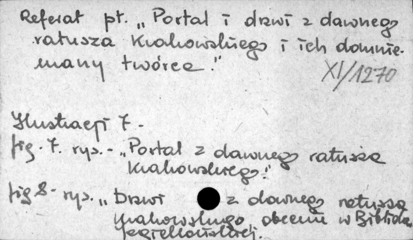 Referat pt. „Portal i drzwi z dawnego
ratusza Krakowskiego i ich domnie-
many twórca."
XI/1270
Ilustracji 7.-
fig. 7. rys. - „Portal z dawnego ratusza
Krakowskiego."
fig 8- rys. „Drzwi z dawnego ratusza
Krakowskiego obecnie w Bibliotece
Jagiellońskiej.